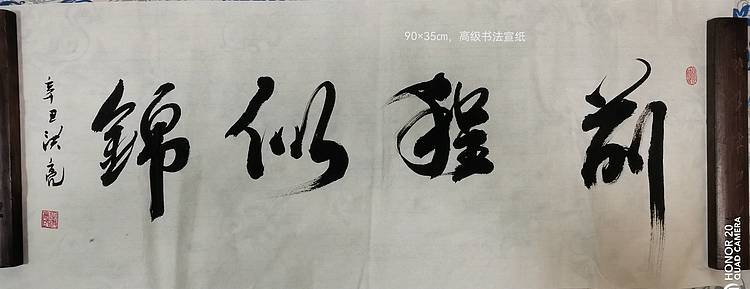 90×35cm，高级书法宣纸
前程似錦
辛丑洪亮
HONOR 20
QUAD CAMERA